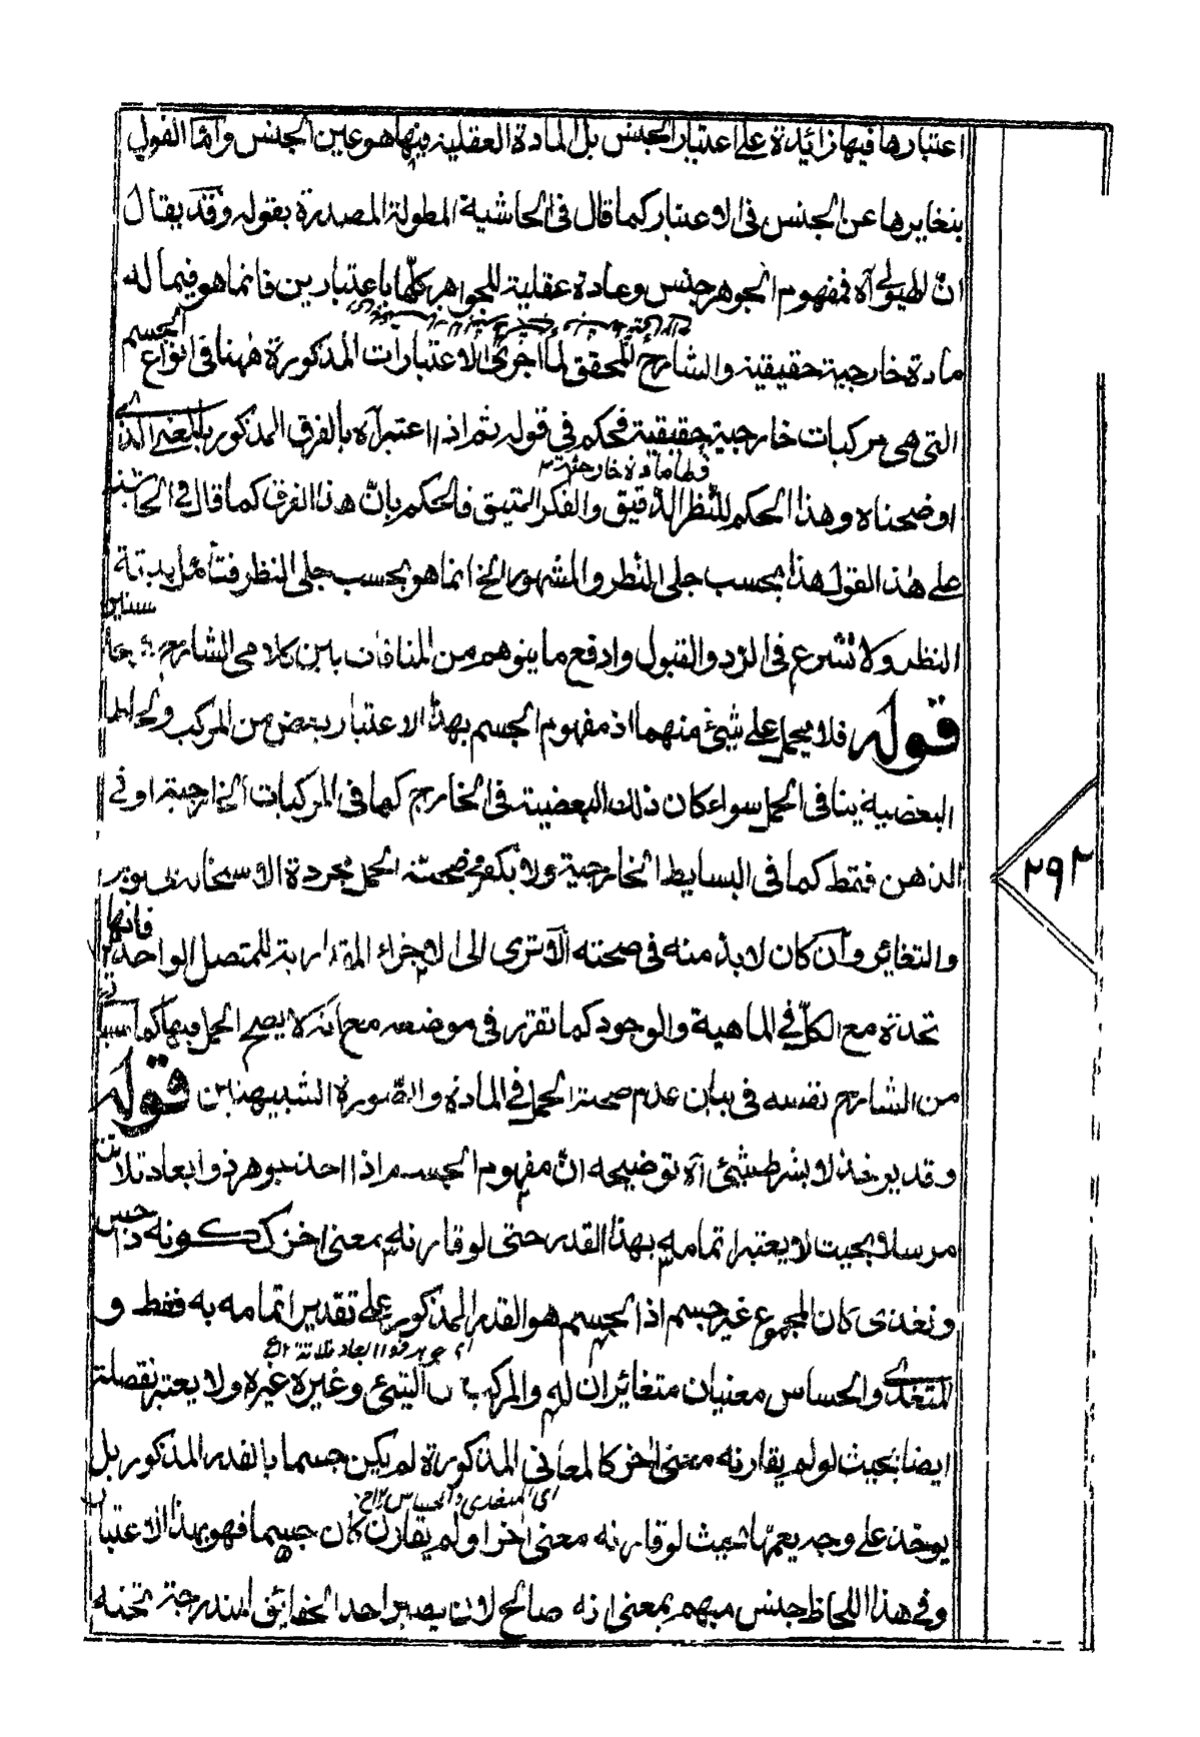 اعتبارها فيها زائدة على اعتبار الجنس بل المادة العقلية فيها هو عين الجنس واما القول
بتغايرها عن الجنس فى الاعتبار كما قال فى الحاشية المطولة المصدرة بقوله وقد يقال
ان الهيولى آه فمفهوم الجوهر جنس ومادة عقلية للجواهر كلها باعتبارين فانما هو فيما له
مادة خارجية حقيقية والشارح المحقق لما اجرى الاعتبارات المذكورة ههنا فى انواع الجسم
التى هى مركبات خارجية حقيقية فحكم فى قوله ثم اذا اعتبر آه بالفرق المذكور بالمعنى الذى
لها مادة خارجية
اوضحناه وهذا الحكم للنظر الدقيق والفكر المتيق فالحكم بان هذا الفرق كما قال فى الحاشية
على هذا القول هذا بحسب جلى النظر والمشهور الخ انما هو بحسب جلى النظر فتأمل بدقة
النظر ولا تشرع فى الرد والقبول وادفع ما يتوهم من المنافات بين كلامى الشارح
قوله فلا يحمل على شئ منهما اذ مفهوم الجسم بهذا الاعتبار بعض من المركب والحال
البعضية ينافى الحمل سواء كان ذلك البعضية فى الخارج كما فى المركبات الخارجية او فى
الذهن فقط كما فى البسايط الخارجية ولا يكفى صحة الحمل مجردة الاتحاد
والتغائر وان كان لابد منه فى صحته الا ترى الى الاجزاء المقدارية للمتصل الواحد فانها
تحدة مع الكل فى الماهية والوجود كما تقرر فى موضعه مع انه لا يصح الحمل فيها كما سيأتى
من الشارح نفسه فى بيان عدم صحة الحمل فى المادة والصورة الشبيهتين قوله
وقد يوخذ لا بشرط شئ آه توضيحه ان مفهوم الجسم اذا اخذ جوهر ذو ابعاد ثلاثة
مرسلا بحيث لا يعتبر تمامه بهذا القدر حتى لو قارنه معنى اخر ككونه ذا حس
وتغذى كان المجموع غير جسم اذ الجسم هو القدر المذكور على تقدير اتمامه به فقط و
اى جوهر ذو ابعاد ثلاثة ١٢
المتغذى والحساس معنيان متغائران له والمركب من الشئ وغيره غيره ولا يعتبر نقصانه
ايضا بحيث لو لم يقارنه معنى اخر كالمعانى المذكورة لم يكن جسما بالقدر المذكور بل
اى المتغذى والحساس ١٢
يوخذ على وجه يعمهما بحيث لو قارنه معنى اخر او لم يقارن كان جسما فهو بهذا الاعتبار
وفى هذا اللحاظ جنس مبهم بمعنى انه صالح لان يصير احد الحقائق المندرجة تحته
٢٩٢